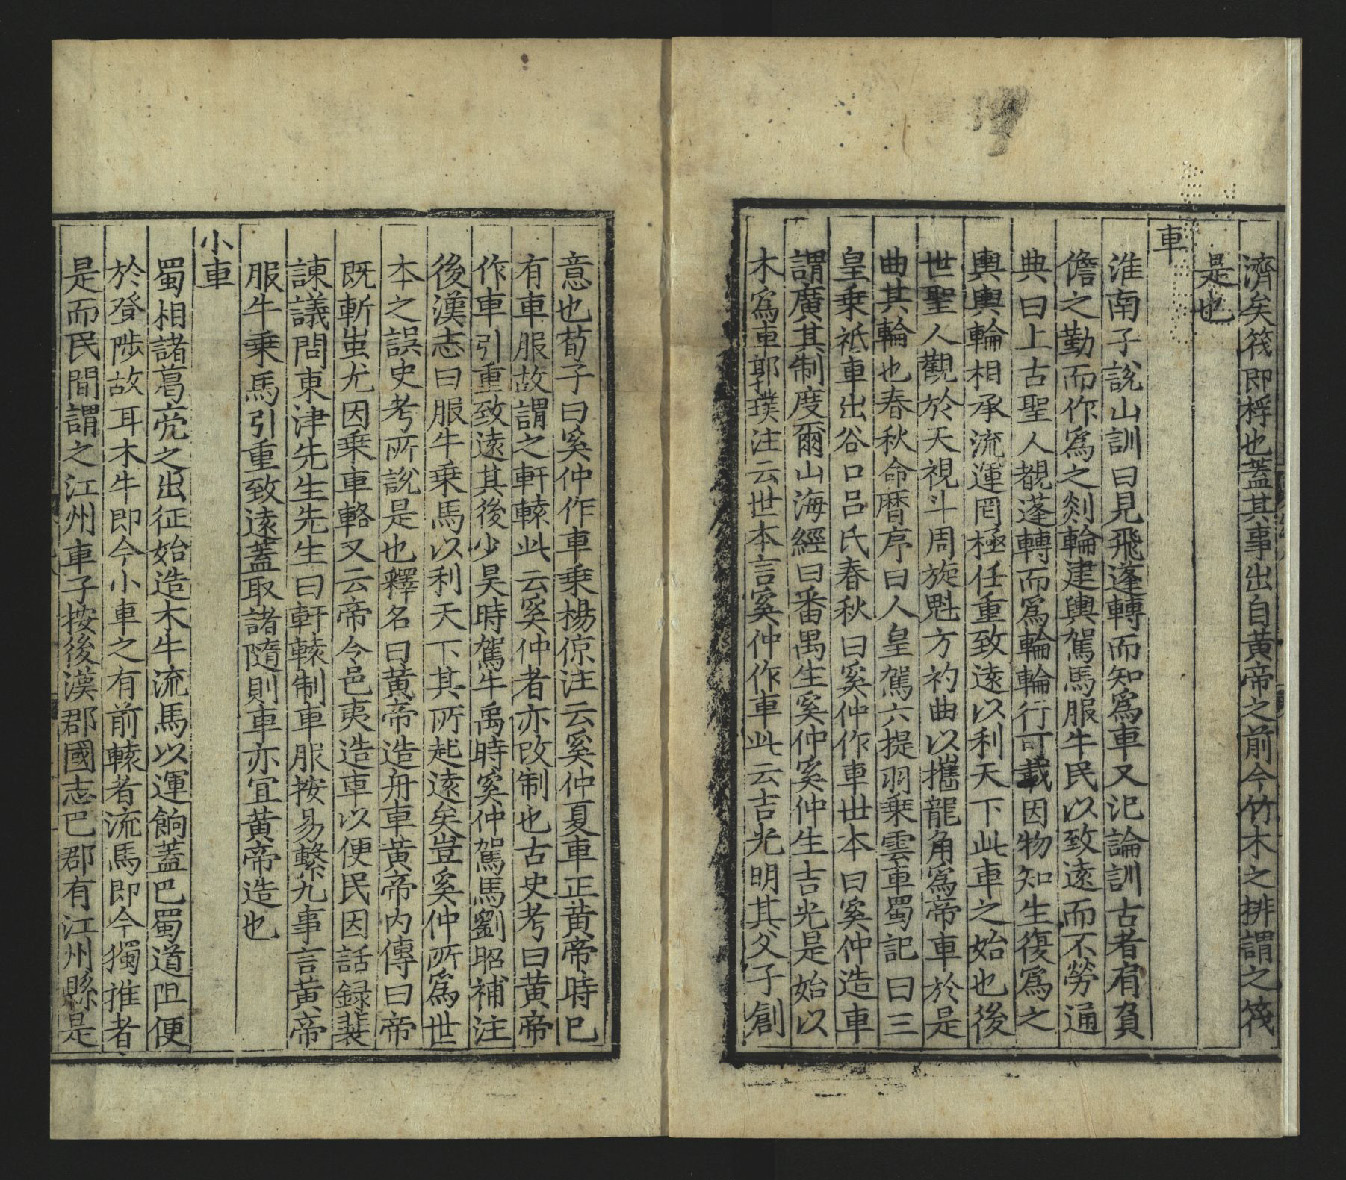 濟矣筏即桴也蓋其事出自黃帝之前今竹木之排謂之筏
是也
車
淮南子說山訓曰見飛蓬轉而知為車又氾論訓古者肩負
儋之勤而作為之剡輪建輿駕馬服牛民以致遠而不勞通
典曰上古聖人覩蓬轉而為輪輪行可載因物知生復為之
輿輿輪相承流運罔極任重致遠以利天下此車之始也後
世聖人觀於天視斗周旋魁方杓曲以攜龍角為帝車於是
曲其輪也春秋命曆序曰人皇駕六提羽乘雲車蜀記曰三
皇乘祗車出谷口呂氏春秋曰奚仲作車世本曰奚仲造車
謂廣其制度爾山海經曰番禺生奚仲奚仲生吉光是始以
木為車郭璞注云世本言奚仲作車此云吉光明其父子創
意也荀子曰奚仲作車乗楊倞注云奚仲夏車正黄帝時已
有車服故謂之軒轅此云奚仲者亦改制也古史考曰黄帝
作車引重致遠其後少昊時駕牛禹時奚仲駕馬劉昭補注
後漢志曰服牛乗馬以利天下其所起遠矣豈奚仲所為世
本之誤史考所說是也釋名曰黄帝造舟車黄帝内傳曰帝
既斬蚩尤因乗車輅又云帝令邑夷造車以便民因話録裴
諫議問東津先生先生曰軒轅制車服按易繫九事言黄帝
服牛乗馬引重致遠蓋取諸隨則車亦宜黄帝造也
小車
蜀相諸葛亮之出征始造木牛流馬以運餉蓋巴蜀道阻便
於登陟故耳木牛即今小車之有前轅者流馬即今獨推者
是而民間謂之江州車子按後漢郡國志巴郡有江州縣是